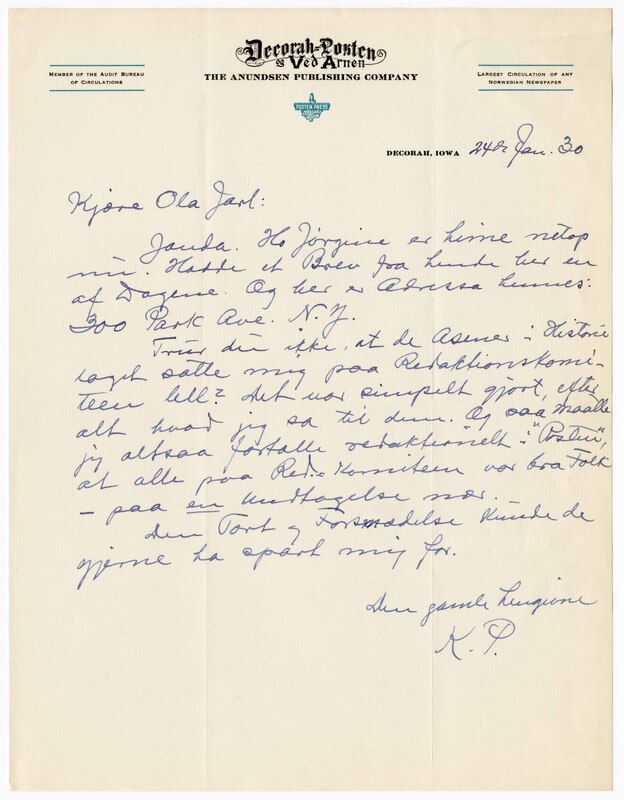 Decorah-Posten
Ved Arnen
THE ANUNDSEN PUBLISHING COMPANY
MEMBER OF THE AUDIT BUREAU
OF CIRCULATIONS
LARGEST CIRCULATION OF ANY
NORWEGIAN NEWSPAPER
POSTEN PRESS
DECORAH, IOWA 24de Jan. 30
Kjære Ola Jarl:
Janda. Ho Jørgine er hime netop
nu. Hadde et Brev fra hende her en
af Dagene. Og her er Adressa hennes:
300 Park Ave. N.Y.
Trur du ikke at de Asener i Historie
laget satte mig paa Redaktionskomi-
teen lell? Det var simpelt gjort, efter
alt hvad jeg sa til dem. Og saa maatte
jeg altsaa fortælle redaktionelt i "Posten",
at alle paa Red. Komiteen var bra Folk
– paa en Undtagelse nær. –
Den Tort og Forsmædelse kunde de
gjerne ha spart mig for.
Den gamle
K. P.